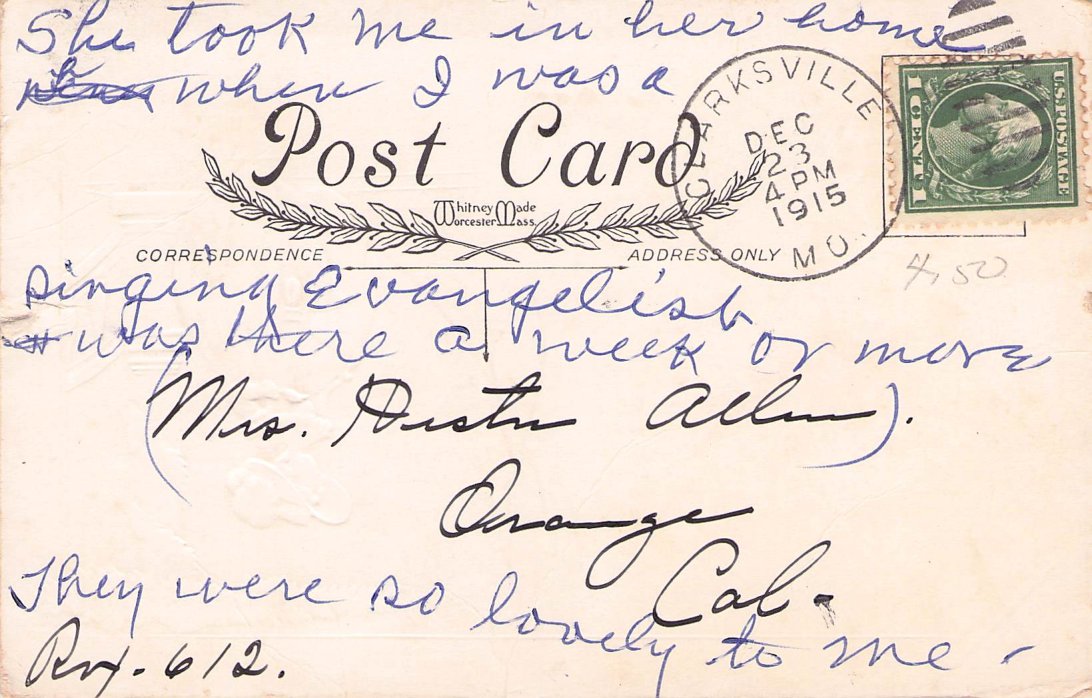 She took me in her home
when I was a
Post Card
CLARKSVILLE
DEC
23
4 PM
1915
MO.
U.S. POSTAGE
1 CENT 1
Whitney Made
Worcester Mass
CORRESPONDENCE
ADDRESS ONLY
4.50
singing Evangelist
was there a week or more
(Mrs. Allen).
Orange
Cal.
They were so lovely to me -
612.